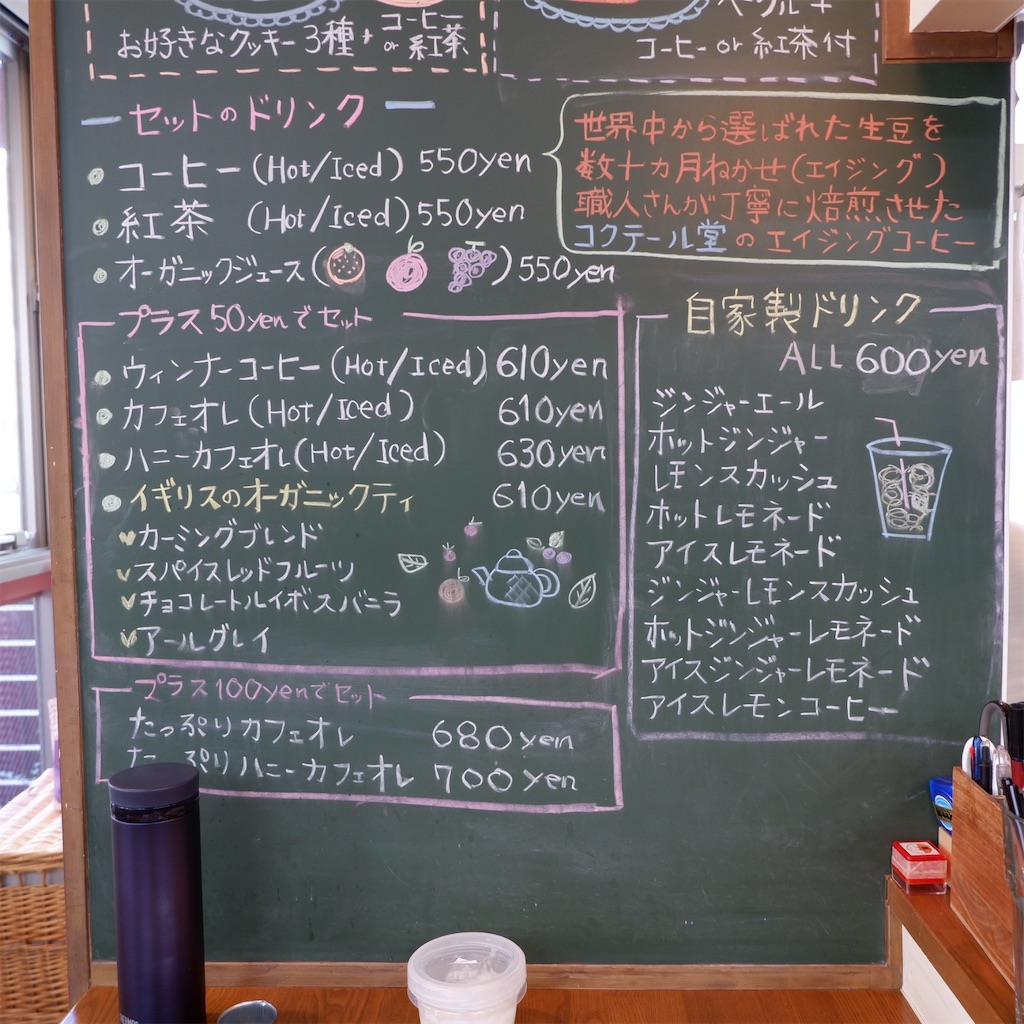 お好きなクッキー3種+コーヒーor紅茶
ベーグル+
コーヒーor紅茶付
セットのドリンク
コーヒー(Hot/Iced) 550yen
紅茶 (Hot/Iced) 550yen
オーガニックジュース( ) 550yen
世界中から選ばれた生豆を
数十カ月ねかせ(エイジング)
職人さんが丁寧に焙煎させた
コクテール堂のエイジングコーヒー
プラス50yenでセット
ウィンナーコーヒー(Hot/Iced) 610yen
カフェオレ(Hot/Iced) 610yen
ハニーカフェオレ(Hot/Iced) 630yen
イギリスのオーガニックティ 610yen
カーミングブレンド
スパイスレッドフルーツ
チョコレートルイボスバニラ
アールグレイ
プラス100yenでセット
たっぷりカフェオレ 680yen
たっぷりハニーカフェオレ 700yen
自家製ドリンク
ALL 600yen
ジンジャーエール
ホットジンジャー
レモンスカッシュ
ホットレモネード
アイスレモネード
ジンジャーレモンスカッシュ
ホットジンジャーレモネード
アイスジンジャーレモネード
アイスレモンコーヒー
THERMOS